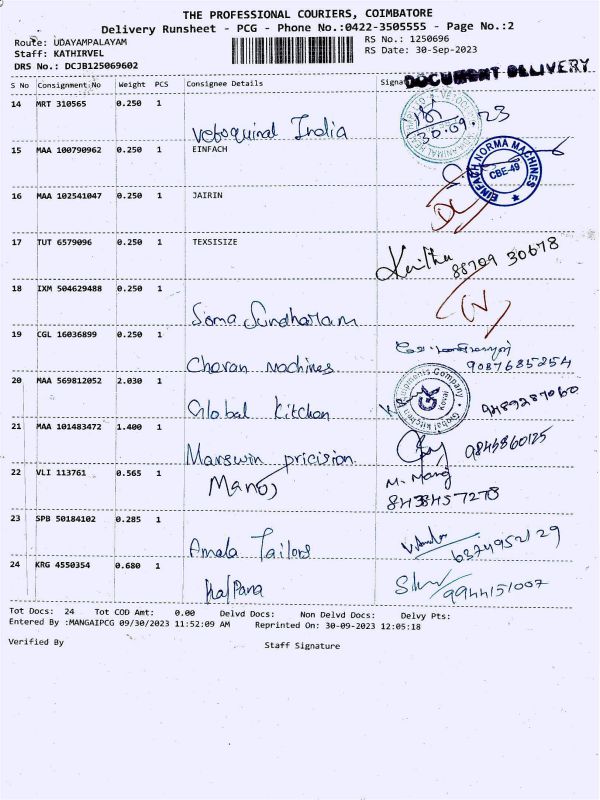 THE PROFESSIONAL COURIERS, COIMBATORE
Delivery Runsheet - PCG - Phone No.:0422-3505555 - Page No.:2
Route: UDAYAMPALAYAM
RS No.: 1250696
Staff: KATHIRVEL
RS Date: 30-Sep-2023
DRS No.: DCJB125069602
DOCUMENT DELIVERY
S No Consignment No Weight PCS Consignee Details
14 MRT 310565 0.250 1 Vetoquinol India 30.09.23
15 MAA 100790962 0.250 1 EINFACH
EINFACH NORMA MACHINES CBE-49
16 MAA 102541047 0.250 1 JAIRIN
17 TUT 6579096 0.250 1 TEXSISIZE
88709 30678
18 IXM 504629488 0.250 1 Soma Sundharam
19 CGL 16036899 0.250 1 Cheran Machines 9087685254
20 MAA 569812052 2.030 1 Global Kitchen 9489287060
Global Kitchen Equipments Company Kovai
21 MAA 101483472 1.400 1 Marswin pricision 9845860125
22 VLI 113761 0.565 1 Manoj M. Manoj
8438457278
23 SPB 50184102 0.285 1 Amala Tailors 6374952129
24 KRG 4550354 0.680 1 kalpana 9944151007
Tot Docs: 24 Tot COD Amt: 0.00 Delvd Docs: Non Delvd Docs: Delvy Pts:
Entered By :MANGAIPCG 09/30/2023 11:52:09 AM Reprinted On: 30-09-2023 12:05:18
Verified By
Staff Signature